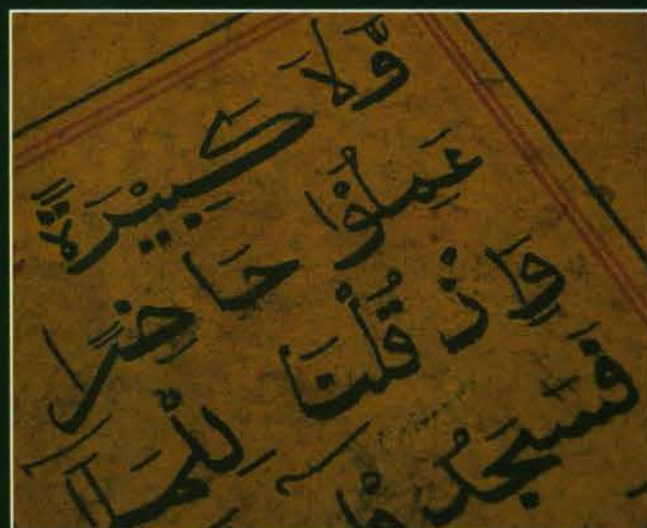 وَّلَا كَبِيْرَةً
عَمِلُوْا حَاضِرًا
وَاِذْ قُلْنَا لِلْمَلَا
فَسَجَدُوْا